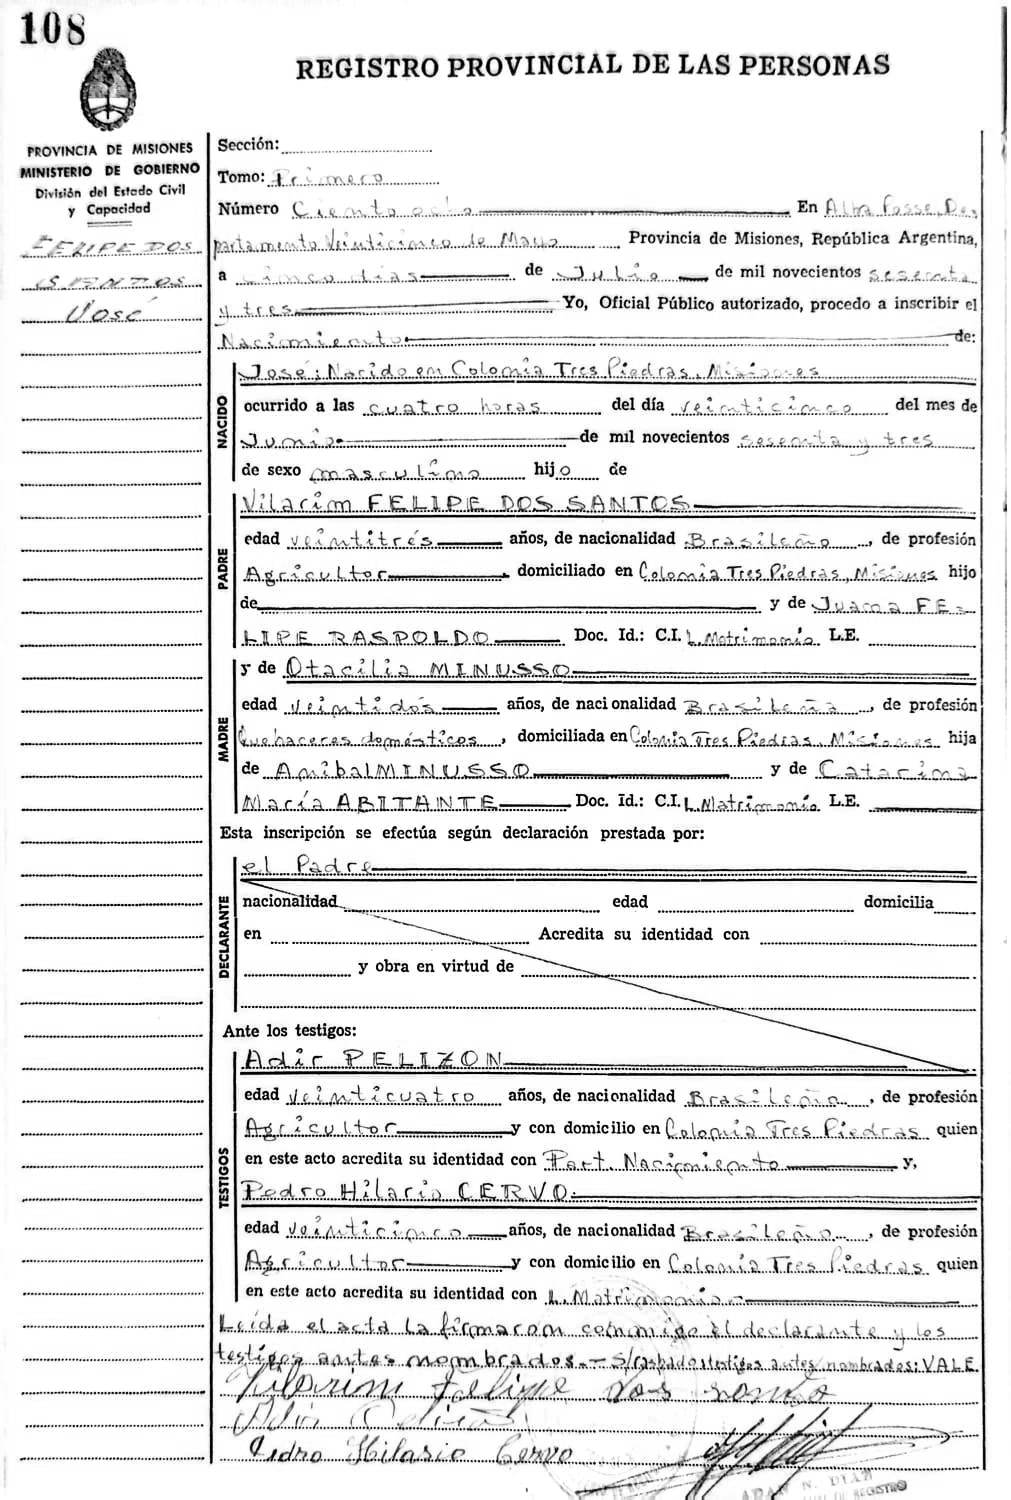 108
REGISTRO PROVINCIAL DE LAS PERSONAS
PROVINCIA DE MISIONES
MINISTERIO DE GOBIERNO
División del Estado Civil
y Capacidad
FELIPE DOS
SANTOS
José
Sección:
Tomo: Primero
Número Ciento ocho En Alba Posse, De-
partamento Veinticinco de Mayo Provincia de Misiones, República Argentina,
a cinco días de Julio de mil novecientos sesenta
y tres Yo, Oficial Público autorizado, procedo a inscribir el
Nacimiento de:
NACIDO
José: Nacido en Colonia Tres Piedras, Misiones
ocurrido a las cuatro horas del día veinticinco del mes de
Junio de mil novecientos sesenta y tres
de sexo masculino hijo de
PADRE
Vilarim FELIPE DOS SANTOS
edad veintitrés años, de nacionalidad Brasileño, de profesión
Agricultor, domiciliado en Colonia Tres Piedras, Misiones hijo
de y de Juana FE-
LIPE RASPOLDO Doc. Id.: C.I. L. Matrimonio L.E.
MADRE
y de Otacilia MINUSSO
edad veintidos años, de nacionalidad Brasileña, de profesión
Quehaceres domésticos, domiciliada en Colonia Tres Piedras, Misiones hija
de Anibal MINUSSO y de Catarina
María ABITANTE Doc. Id.: C.I. L. Matrimonio L.E.
Esta inscripción se efectúa según declaración prestada por:
DECLARANTE
el Padre
nacionalidad edad domicilia
en Acredita su identidad con
y obra en virtud de
Ante los testigos:
TESTIGOS
Adir PELIZON
edad veinticuatro años, de nacionalidad Brasileña, de profesión
Agricultor y con domicilio en Colonia Tres Piedras quien
en este acto acredita su identidad con Part. Nacimiento y,
Pedro Hilario CERVO
edad veinticinco años, de nacionalidad Brasileño, de profesión
Agricultor y con domicilio en Colonia Tres Piedras quien
en este acto acredita su identidad con L. Matrimonio
Leída el acta la firmaron conmigo el declarante y los
testigos antes nombrados.- S/raspado: testigos antes nombrados: VALE
Vilarim Felipe dos
Adir
Pedro Hilario Cervo
N. DIAZ
REGISTRO